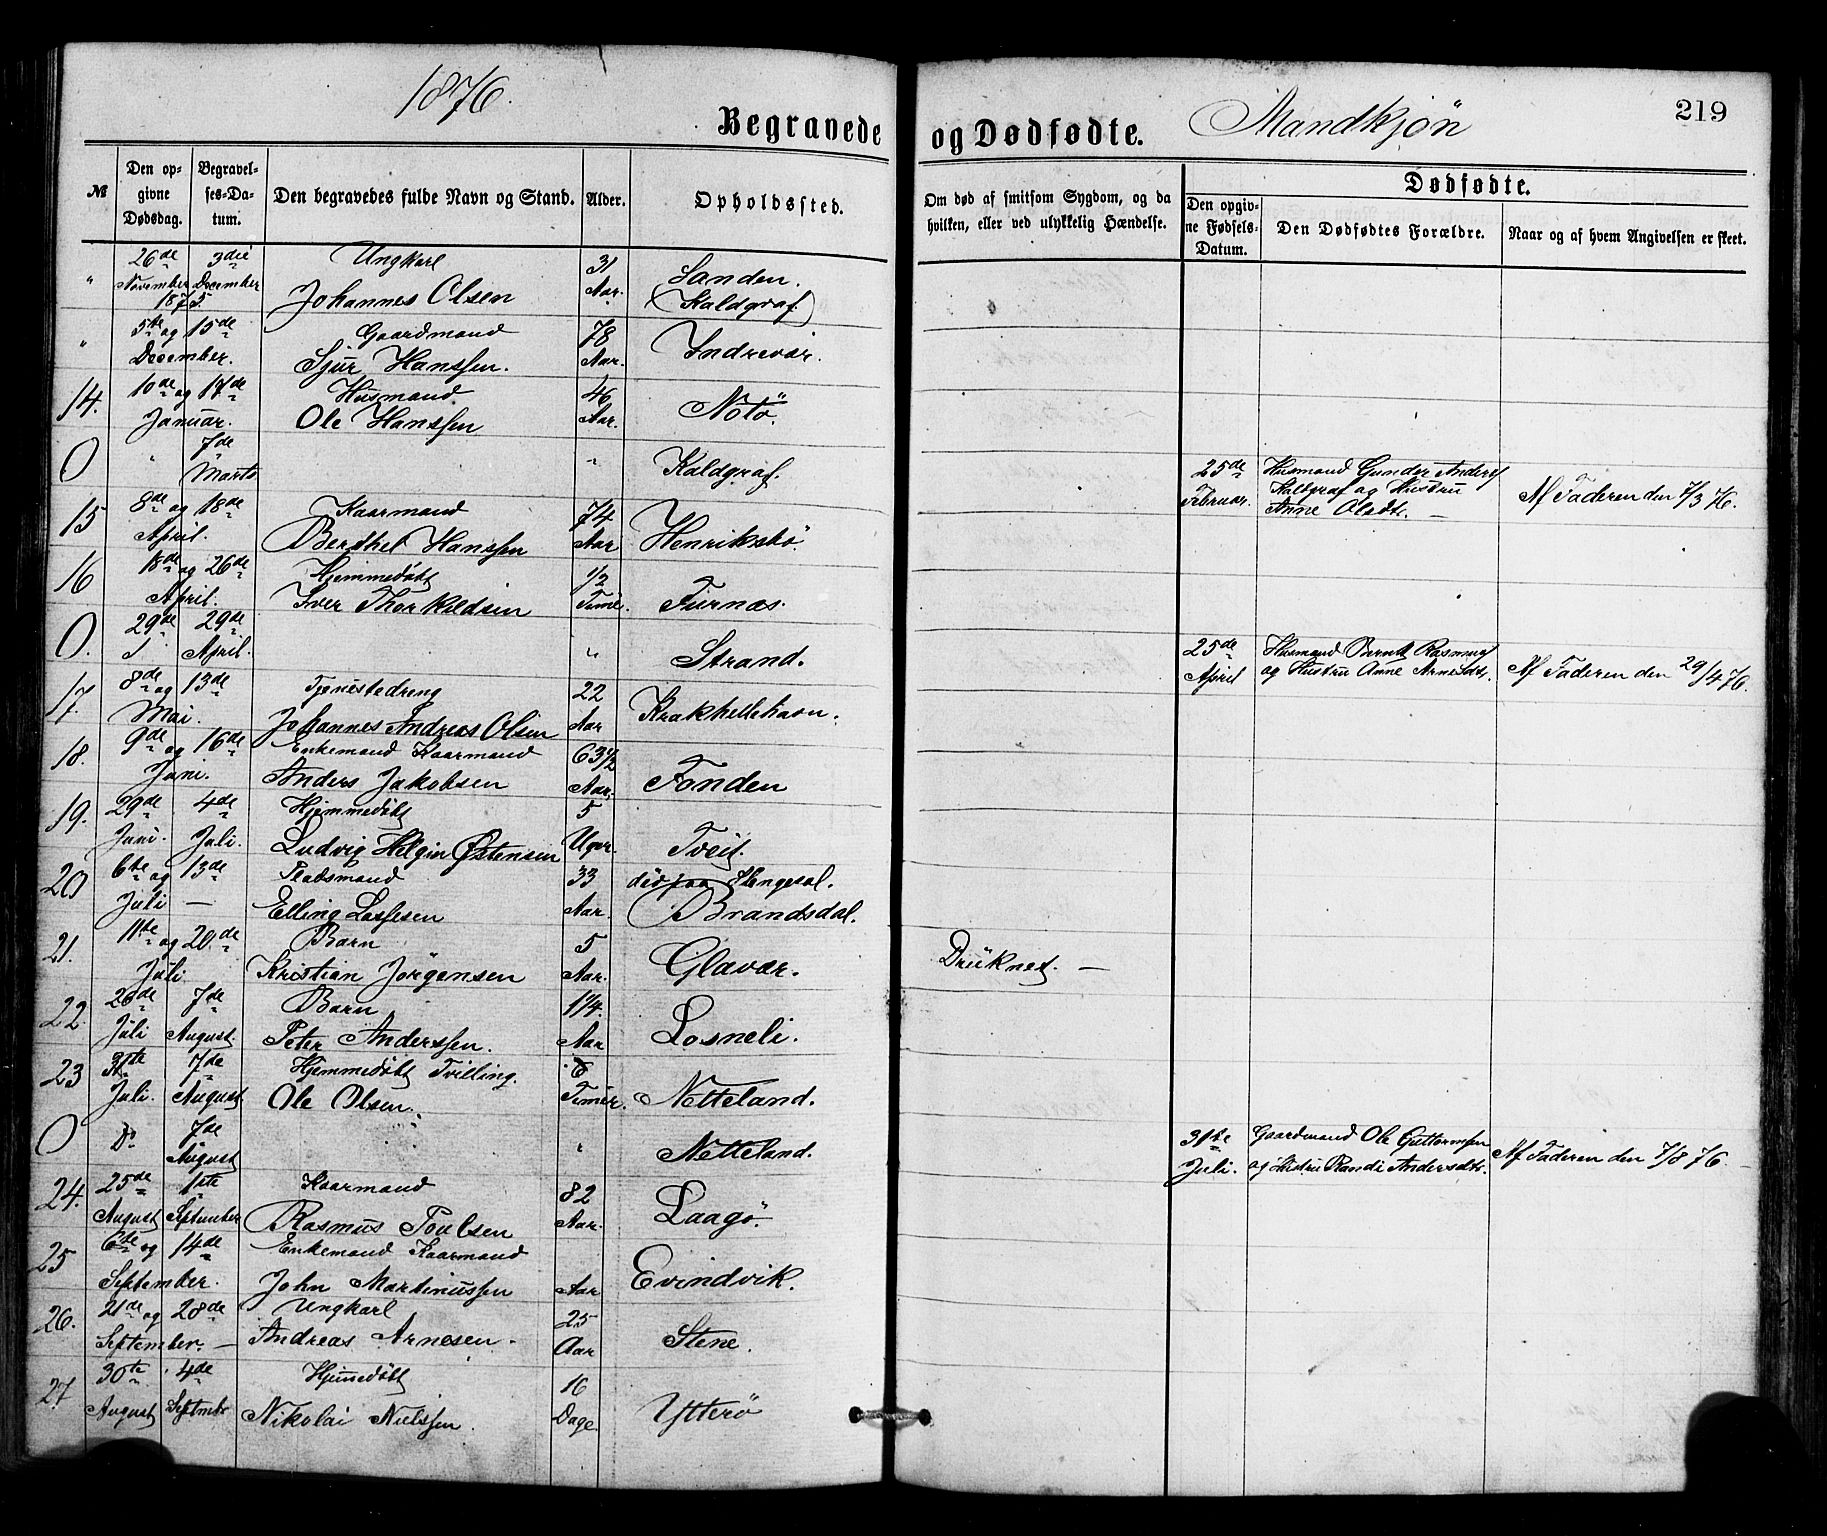 1876.
Begravede og Dødfødte. Mandkjøn 219
№
Den opgivne Dødsdag.
Begravelses-Datum.
Den begravedes fulde Navn og Stand.
Alder.
Opholdssted.
Om død af smitsom Sygdom, og da hvilken, eller ved ulykkelig Hændelse.
Dødfødte.
Den opgivne Fødsels-Datum.
Den Dødfødtes Forældre.
Naar og af hvem Angivelsen er skeet.
" 26de November 3die December 1875. Ungkarl 31 Aar. Sanden.
Johannes Olsen (Kaldgraf)
" 5te og 15de Gaardmand 78 Indrevær.
December. Sjur Hanssen. Aar.
14. 10de og 17de Husmand 46 Notö.
Januar. Ole Hanssen Aar.
0 " 7de Marts " Kaldgraf. 25de Februar. Husmand Gunder Anders
Kaldgraf og Hustru
Anne Olsdtr. — Af Faderen den 7/3 76.
15 8de og 18de Kaarmand 74 Henriksbö.
April. Berthel Hanssen Aar
16 18de og 26de Hjemmedöbt 1/2 Furnæs.
April. Iver Thorkildsen Time.
0. 29de 29de April. " Strand. 25de April Husmand Berndt Rasmus
og Hustru Anne Arnesdtr. Af Faderen den 29/4 76.
17. 8de og 13de Tjenestedreng 22 Krakhellehavn.
Mai. Johannes Andreas Olsen Aar
18. 9de og 16de Enkemand Kaarmand 63 1/2 Fonden
Juni. Anders Jakobsen Aar.
19. 29de 4de Hjemmedöbt 5 Tveit.
Juni. Juli. Ludvig Helgin Østensen Uger.
20 6te og 13de Pladsmand 33
Juli — Elling Lassesen Aar. Brandsdal.
21. 11te og 20de Barn 5 Glavær. Drüknet. —
Juli Kristian Jörgensen Aar.
22. 26de 7de Barn 1 1/4. Losneli.
Juli August. Peter Anderssen. Aar
23 31te 7de Hjemmedöbt Tvilling. 6 Netteland.
Juli. August Ole Olsen. Timer.
0 Do 7de August " Netteland. 31te Juli. Gaardmand Ole Guttormsen
og Hustru Randi Andersdtr. Af Faderen den 7/8 76.
24. 25de 1ste Kaarmand 82 Laagö.
August September Rasmus Poulsen Aar.
25 6te og 14de Enkemand Kaarmand Evindvik.
September. John Martinussen Aar
26. 21de og 28de Ungkarl 25 Stene.
September. — Andreas Arnesen. Aar
27 30te 4de Hjemedöbt 16 Ytterö
August Septmbr Nikolai Nielssen. Dage.